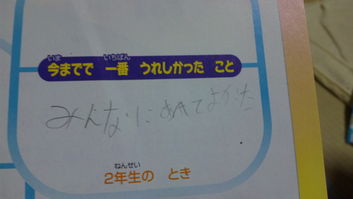 いま いちばん
今までで 一番 うれしかった こと
みんなにあえてよかった
ねんせい
2年生の とき